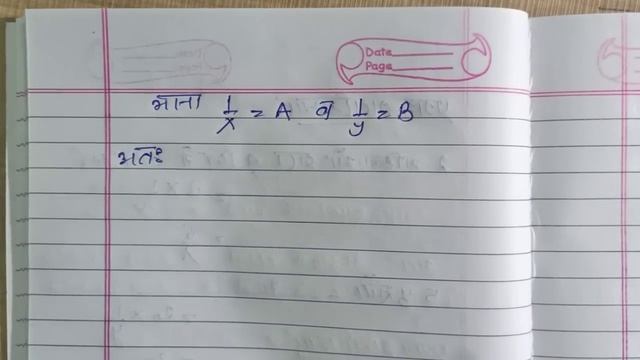 Date
Page
माना 1/x = A व 1/y = B
अतः